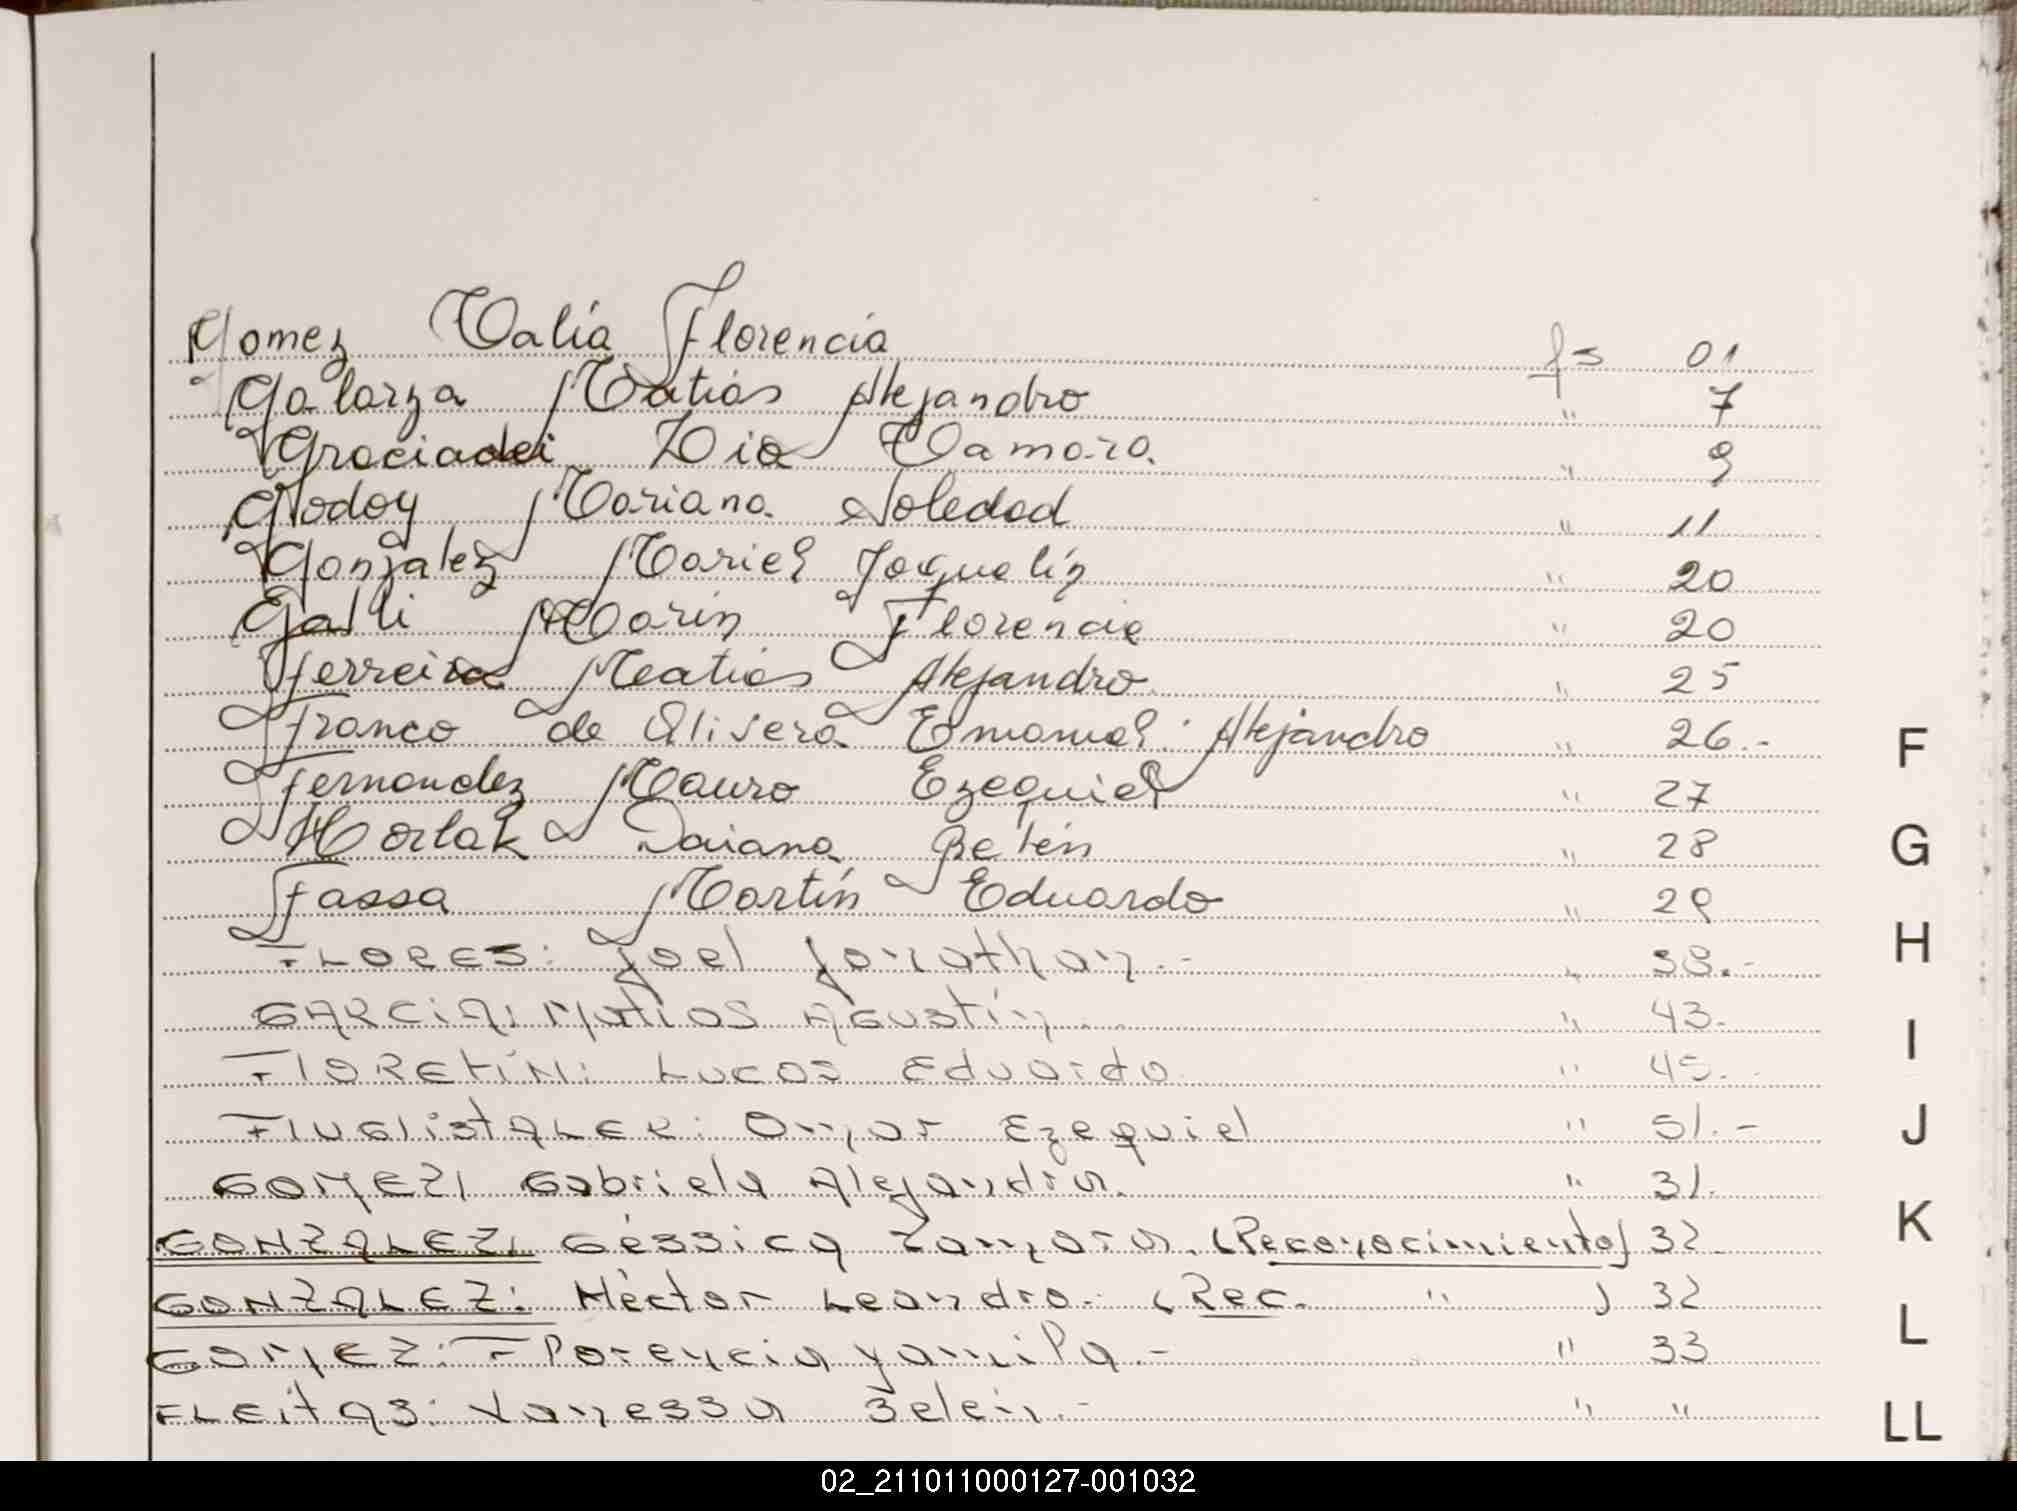 Gomez Talia Florencia fs 01
Galarza Matias Alejandro " 7
Graciadei Tamara " 9
Godoy Mariana Soledad " 11
Gonzalez Mariel Jaquelin " 20
Galli Marin Florencia " 20
Ferreira Matias Alejandro " 25
Franco de Olivera Emanuel Alejandro " 26.-
Fernandez Mauro Ezequiel " 27
Horlak Daiana Belén " 28
Fassa Martín Eduardo " 29
FLORES: Joel Jonathan.- " 38.-
GARCIA: Matias Agustín " 43.-
FIORETIN: Lucas Eduardo " 45.-
Omar Ezequiel " 51.-
GOMEZ, Gabriela Alejandra. " 31.
GONZALEZ, Géssica Tamara. (Reconocimiento) 32
GONZALEZ: Héctor Leandro. (Rec. " ) 32
GOMEZ: Florencia Yamila.- " 33
FLEITAS: Vanessa Belén.- " "
F
G
H
I
J
K
L
LL
02_211011000127-001032